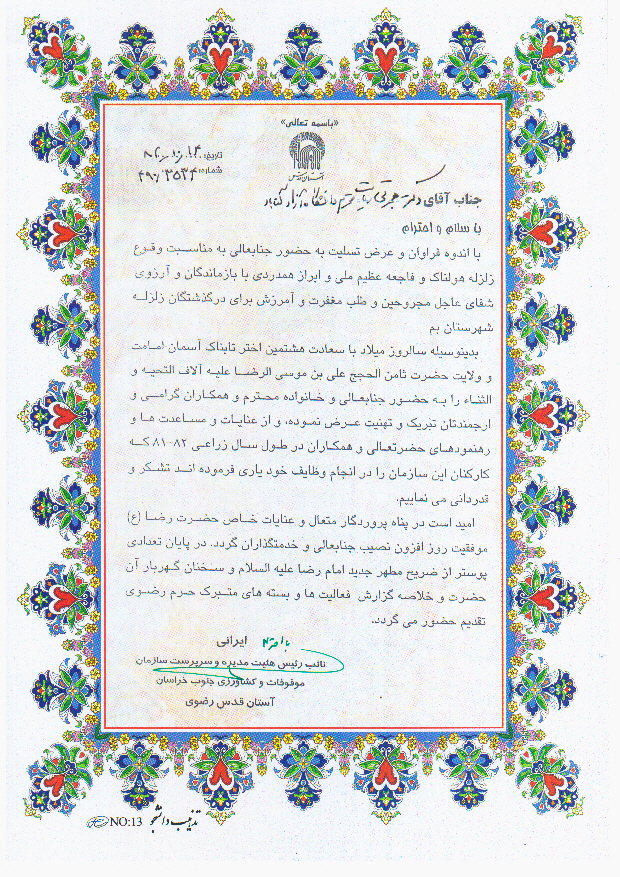 «باسمه تعالی»
تاریخ: ۸۲/۱۰/۱۴
شماره: ۴۹۰/۳۵۳۴
آستان قدس
جناب آقای دکتر ریاست محترم دانشگاه آزاد گناباد
با سلام و احترام
با اندوه فراوان و عرض تسلیت به حضور جنابعالی به مناسبت وقوع
زلزله هولناک و فاجعه عظیم ملی و ابراز همدردی با بازماندگان و آرزوی
شفای عاجل مجروحین و طلب مغفرت و آمرزش برای درگذشتگان زلزله
شهرستان بم
بدینوسیله سالروز میلاد با سعادت هشتمین اختر تابناک آسمان امامت
و ولایت حضرت ثامن الحجج علی بن موسی الرضا علیه آلاف التحیه و
الثناء را به حضور جنابعالی و خانواده محترم و همکاران گرامی و
ارجمندتان تبریک و تهنیت عرض نموده، و از عنایات و مساعدت ها و
رهنمودهای حضرتعالی و همکاران در طول سال زراعی ۸۲-۸۱ که
کارکنان این سازمان را در انجام وظایف خود یاری فرموده اند تشکر و
قدردانی می نماییم.
امید است در پناه پروردگار متعال و عنایات خاص حضرت رضا (ع)
موفقیت روز افزون نصیب جنابعالی و خدمتگذاران گردد. در پایان تعدادی
پوستر از ضریح مطهر جدید امام رضا علیه السلام و سخنان گهربار آن
حضرت و خلاصه گزارش فعالیت ها و بسته های متبرک حرم رضوی
تقدیم حضور می گردد.
با احترام ایرانی
نائب رئیس هیئت مدیره و سرپرست سازمان
موقوفات و کشاورزی جنوب خراسان
آستان قدس رضوی
تذهیب دانشجو NO:13